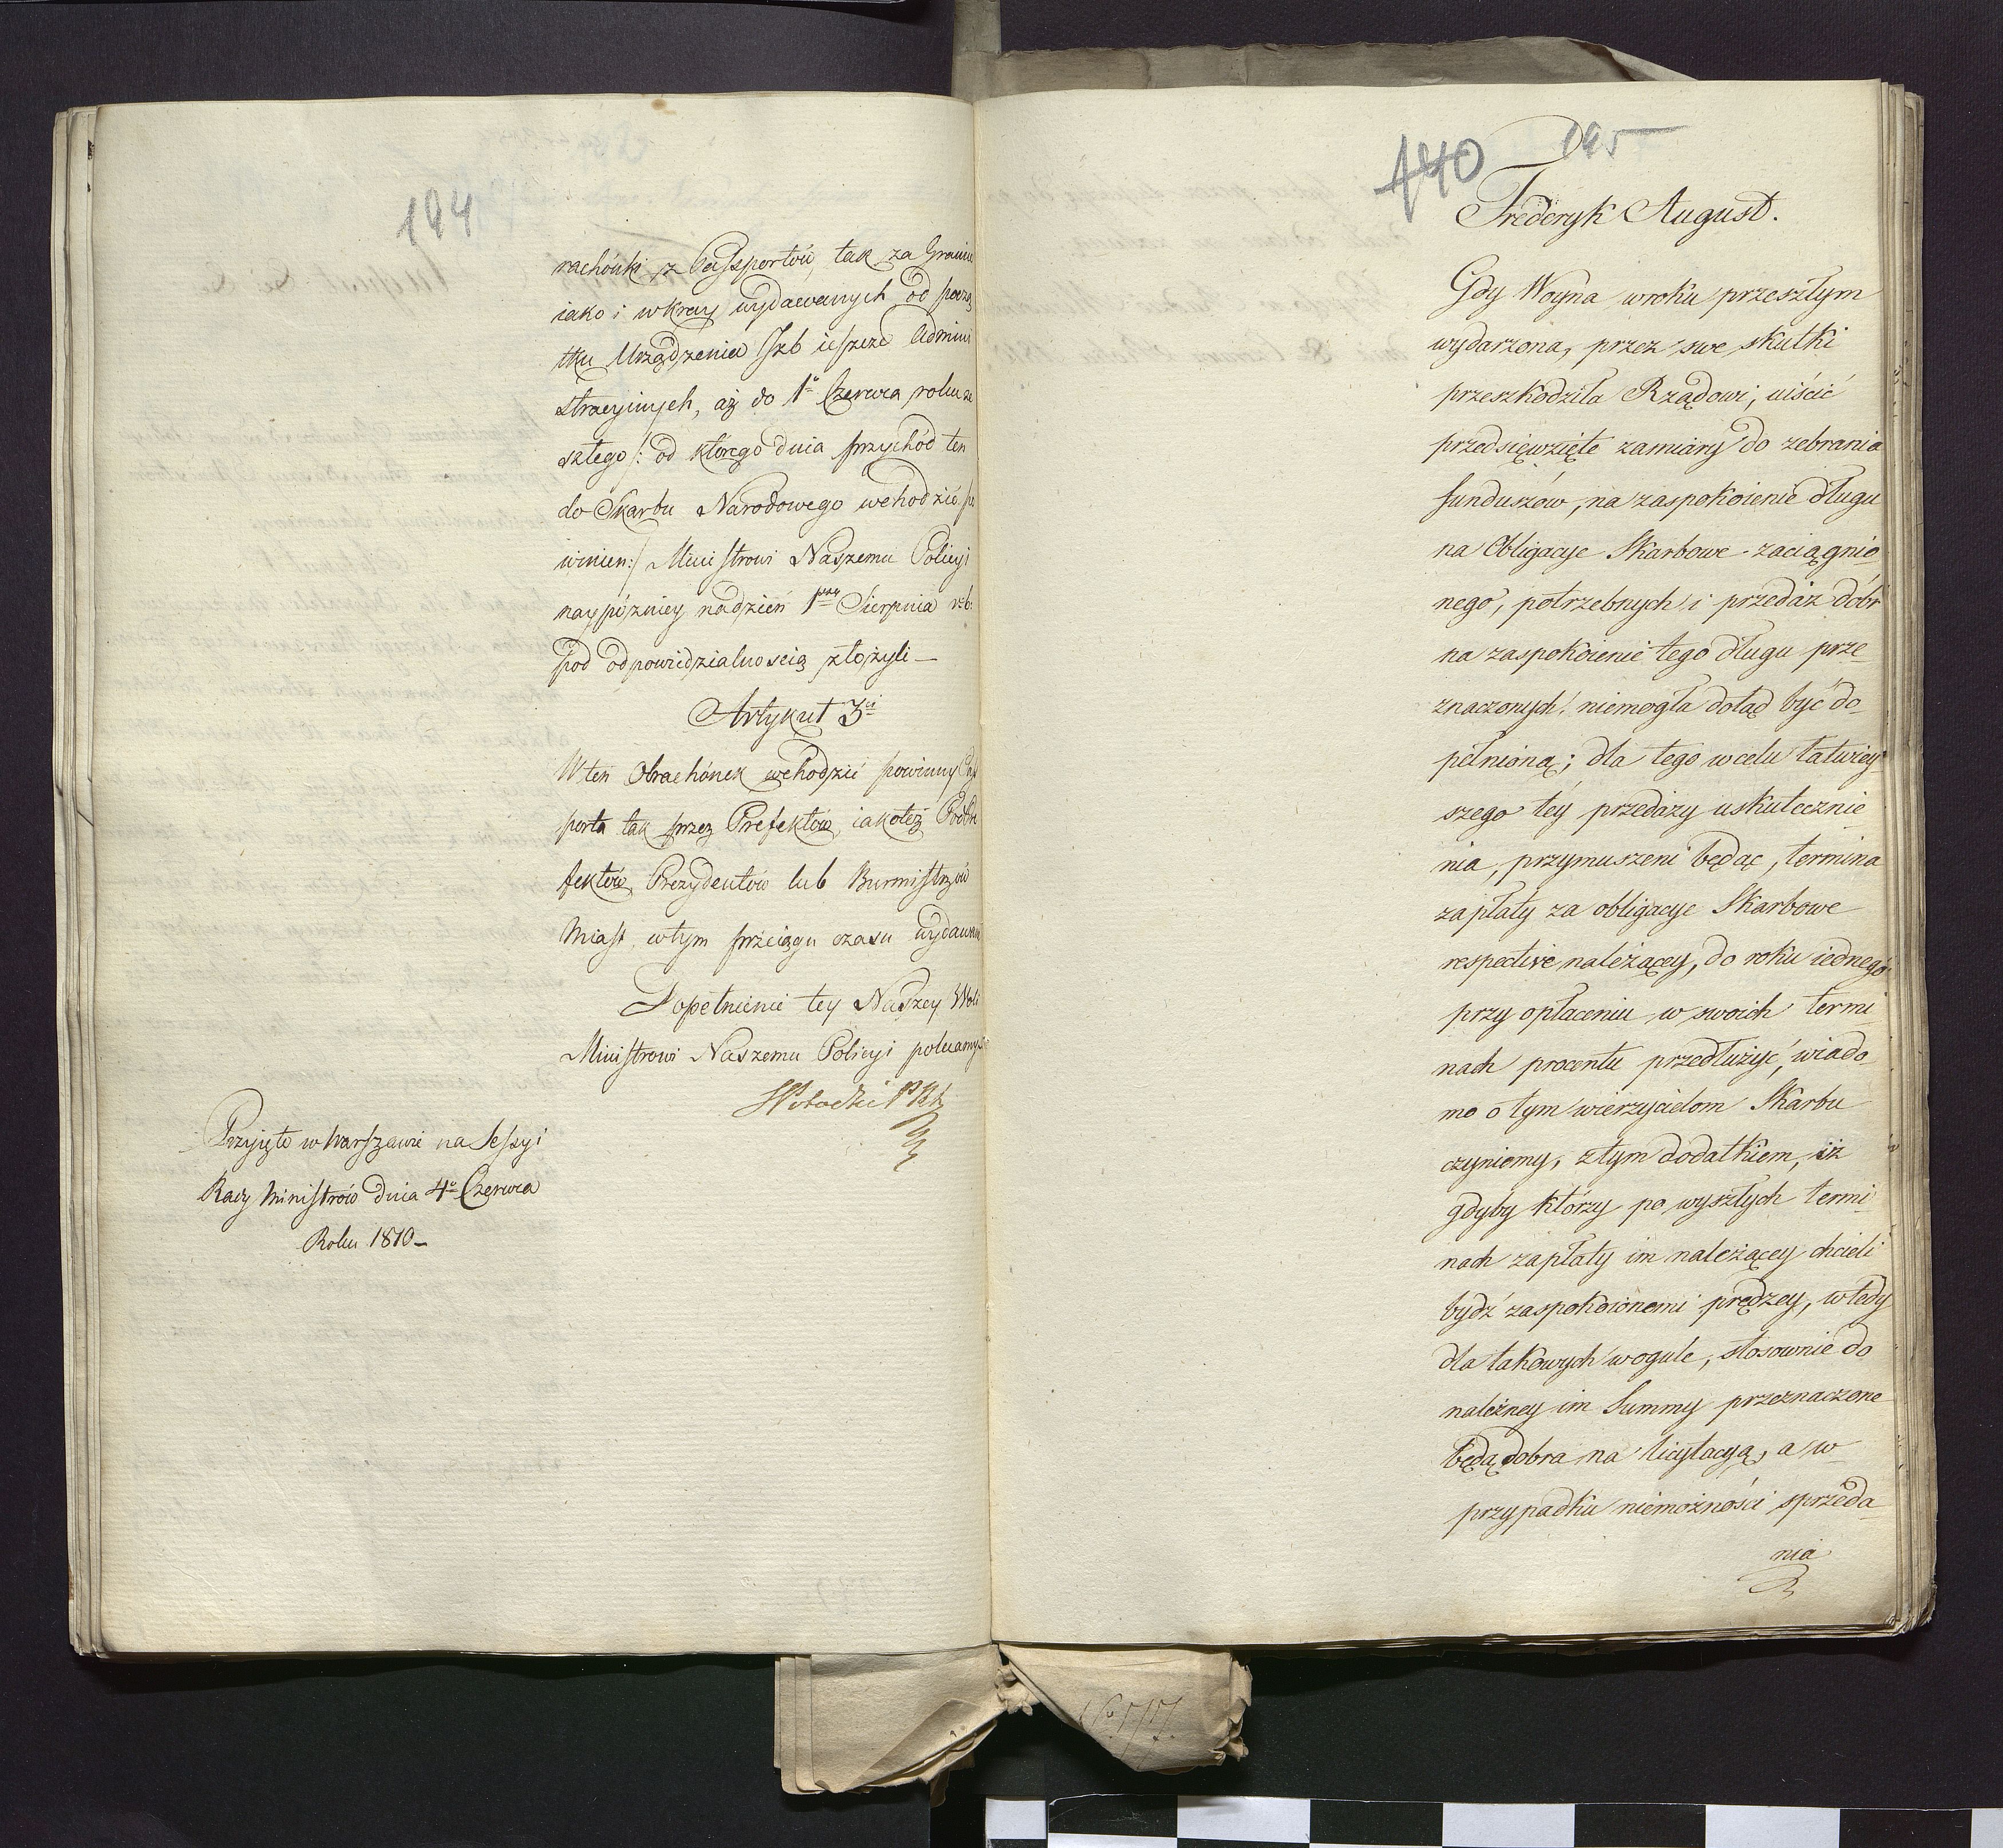 194
rachónki z Passportów, tak za Granic
iako i w kray wydawanych od począ
tku Urządzenia Izb ieszcze Admini
stracyinych, aż do 1º Czerwca roku ze
szłego /: od którego dnia przychód ten
do Skarbu Narodowego wchodzić po
winien :/ Ministrowi Naszemu Policyi
naypózniey na dzień 1wszy Sierpnia r. b.
pod odpowiedzialnoscią złożyli —
Artykuł 3ci
W ten Obrachónek wchodzić powinny Pas
porta tak przez Prefektów, iako też Podpre
fektów, Prezydentów lub Burmistrzów
Miast, w tym przeciągu czasu wydawan
Dopełnienie tey Naszey Woli
Ministrowi Naszemu Policyi polecamy
Przyjęto w Warszawie na Sessyi
Rady Ministrów dnia 4º Czerwca
Roku 1810 —
440 195
Frederyk August.
Gdy Woyna w roku przeszłym
wydarzona, przez swe skutki
przeszkodziła Rządowi, uiścić
przedsięwzięte zamiary do zebrania
funduszów, na zaspokoienie długu
na Obligacye Skarbowe zaciągnio
nego, potrzebnych i przedaż dóbr
na zaspokoienie tego długu prze-
znaczonych niemogła dotąd być do-
pełnioną; dla tego w celu łatwiey-
szego téy przedaży uskutecznie-
nia, przymuszeni będąc, termina
zapłaty za obligacye Skarbowe
respective należącey, do roku iednego
przy opłaceniu w swoich termi-
nach procentu przedłużyć, wiado-
mo o tym wierzycielom Skarbu
czyniemy, z tym dodatkiem, iż
gdyby którzy po wyszłych termi-
nach zapłaty im należącey chcieli
bydź zaspokoionemi prędzey, wtedy
dla takowych wogule, stosownie do
należney im Summy przeznaczone
będą dobra na licytacyą, a w
przypadku niemożności sprzeda-
nia